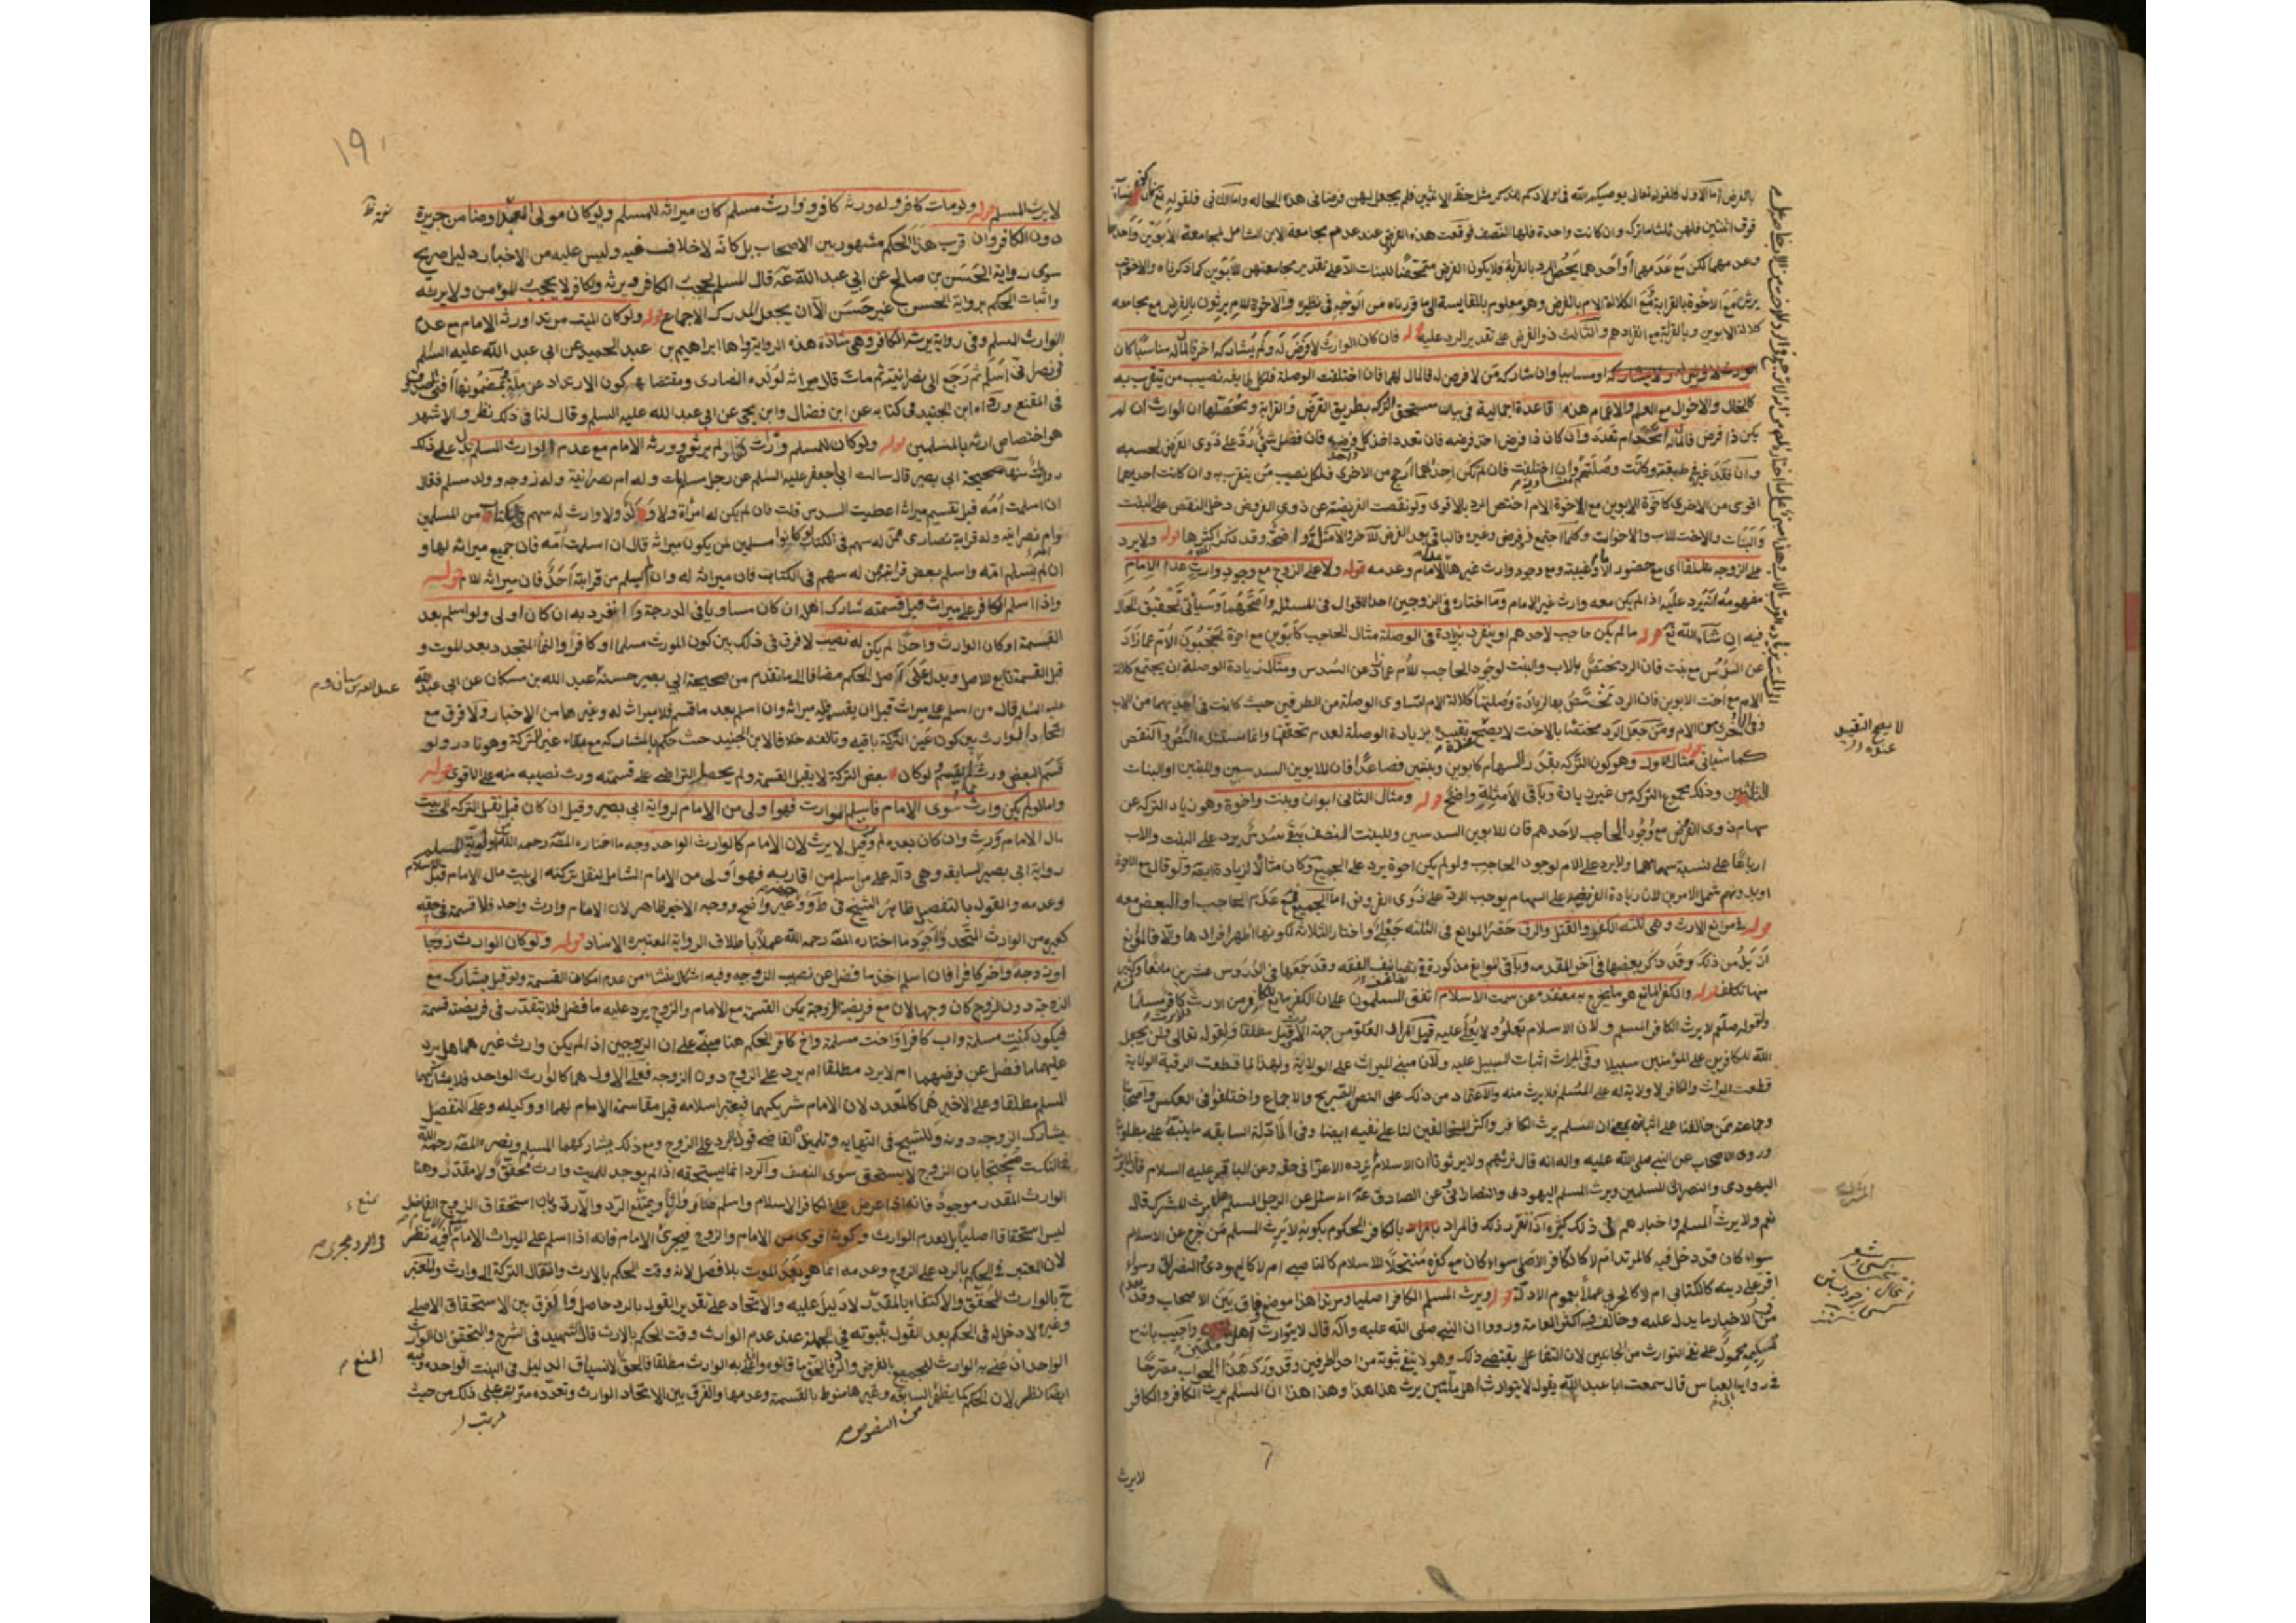 بالفرض اما الاول فلقوله تعالى يوصيكم الله في اولادكم للذكر مثل حظ الانثيين فلم يجعل لهن فرضا في هذه الحاله واما الثاني فلقوله تع فان كن نساء
فوق اثنتين فلهن ثلثا ما ترك وان كانت واحدة فلها النصف فوقعت هذه الفرض عند عدم مجامعة الابن الشامل لمجامعة الابوين واحدهما
وعدمهما لكن مع عدمهما او احدهما يحصل الرد بالقرابة فلا يكون الفرض متمحضا للبنات الا على تقدير مجامعتهن للابوين كما ذكرناه والاخوات
يرثن مع الاخوة بالقرابة ومع الكلالة الام بالفرض وهو معلوم بالمقايسة الى ما قررناه من التوجيه في نظيره والاخوة للام يرثون بالفرض مع مجامعه
كلالة الابوين وبالقرابة مع انفرادهم والثالث ذو الفرض على تقدير الرد عليه قوله فان كان الوارث لا فرض له ولم يشاركه اخر فالمال له مناسبا كان
او مسابيا وان شاركه من لا فرض له فالمال لهما فان اختلفت الوصلة فلكل طايفه نصيب من يتقرب به
كالخال والاخوال مع العم والاعمام هذه قاعدة اجمالية في بيان مستحق التركه بطريق الفرض والقرابة ومحصلها ان الوارث ان لم
يكن ذا فرض فالمال له اتحد ام تعدد وان كان ذا فرض اخذ فرضه فان تعدد اخذ كل فرضه فان فضل شيء رد على ذوي الفرض بحسبه
وان فقد غيره في طبقته وكانت وصلتهم وان اختلفت فان لم تكن احدهما ارجح من الاخرى فلكل نصيب من يتقرب به وان كانت احديهما
اقوى من الاخرى كاخوة الابوين مع الاخوة الام اختص الرد بالاقوى ولو نقصت الفريضة عن ذوي الفروض دخل النقص على البنت
والبنات والاخت للاب والاخوات وكلما اجتمع ذو فرض وغيره فالباقي بعد الفرض للآخر والامثلة واضحة وقد ذكر اكثرها قوله ولا يرد
على الزوجه مطلقا اى مع حضور الامام وغيبته ومع وجود وارث غيرها الامام وعدمه قوله ولا على الزوج مع وجود وارث عدا الامام
مفهومه انه يرد عليه اذا لم يكن معه وارث غير الامام وما اختاره في الزوجين احد الاقوال في المسئلة واصحهما وسياتي تحقيق الحال
فيه ان شاء الله تع قوله ما لم يكن حاجب لاحدهم او ينفرد بزيادة في الوصلة مثال الحاجب كابوين مع اخوة يحجبون الام عما زاد
عن السدس مع بنت فان الرد يختص بالاب والبنت لوجود الحاجب للام عما زاد عن السدس ومثال زيادة الوصلة ان يجتمع كلالة
الام مع اخت الابوين فان الرد تختص بها لزيادة وصلتها كلالة الام لتساوى الوصلة من الطرفين حيث كانت في احديهما من الاب
وفي الاخرى من الام ومن جعل الرد مختصا بالاخت لا يصح تقييده بزيادة الوصلة لعدم تحققها وانما مستنده النص والنقص
كما سياتي قوله مثال الاول وهو كون التركه بقدر السهام كابوين وبنتين فصاعدا فان للابوين السدسين وللبنتين او البنات
الثلثين وذلك مجموع التركه من غير زيادة وباقي الامثلة واضح قوله ومثال الثاني ابوان وبنت واخوة وهو زياد التركه عن
سهام ذوى الفرض مع وجود الحاجب لاحدهم فان للابوين السدسين وللبنت النصف يبقى سدس يرد على البنت والاب
ارباعا على نسبة سهامهما ولا يرد على الام لوجود الحاجب ولو لم يكن اخوة يرد على الجميع وكان مثالا لزيادة ايضا ولو قال مع الاخوة
او بدونهم شمل الامرين لان زيادة الفريضة على السهام يوجب الرد على ذوي الفروض اما الجميع مع عدم الحاجب او البعض معه
قوله في موانع الارث وهي ثلثه الكفر والقتل والرق حصر الموانع في الثلثه جعلي واختار الثلاثة لكونها اظهر افرادها والا فالموانع
ازيد من ذلك وقد ذكر بعضها في آخر المقدمه وباقي الموانع مذكورة في تضاعيف الفقه وقد جمعها في الدروس عشرين مانعا وكثير
منها تكلف قوله والكفر المانع هو ما يخرج به معتقده عن سمت الاسلام اتفق المسلمون على ان الكفر مانع للكافر من الارث كافرا ومسلما
ولقوله صلعم لا يرث الكافر المسلم ولان الاسلام يعلو ولا يعلى عليه قيل المراد العلو من جهة الارث وقيل مطلقا ولقوله تعالى ولن يجعل
الله للكافرين على المؤمنين سبيلا وفي الميراث اثبات السبيل عليه ولان مبنى الميراث على الولاية ولهذا لما قطعت الرقية الولاية
قطعت الميراث والكافر لا ولاية له على المسلم فلا يرث منه والاعتماد من ذلك على النص الصريح والاجماع واختلفوا في العكس واصحابنا
وجماعة ممن خالفنا على اثباته بمعنى ان المسلم يرث الكافر واكثر المخالفين لنا على نفيه ايضا وفي الادلة السابقه ما ينبه على مطلوبنا
وروى الاصحاب عن النبي صلى الله عليه واله انه قال نرثهم ولا يرثونا ان الاسلام لم يزده الا عزا في حقه وعن الباقر عليه السلام قال لا يرث
اليهودى والنصراني المسلمين ويرث المسلم اليهودى والنصراني وعن الصادق عه انه سئل عن الرجل المسلم هل يرث المشرك قال
نعم ولا يرث المسلم واخبارهم في ذلك كثيرة اذا تقرر ذلك فالمراد بالكافر المحكوم بكونه لا يرث المسلم من خرج عن الاسلام
سواء كان قد دخل فيه كالمرتد ام لا كالكافر الاصلي سواء كان مع كفره منتحلا للاسلام كالناصبى ام لا كاليهودى والنصراني وسواء
اقر على دينه كالكتابي ام لا كالحربي عملا بعموم الادلة قوله ويرث المسلم الكافر اصليا ومرتدا هذا موضع وفاق بين الاصحاب وقد تقدم
من الاخبار ما يدل عليه وخالف فيه اكثر العامة ورووا ان النبي صلى الله عليه وآله قال لا يتوارث اهل ملتين واجيب بانه مع
تسليمه محمول على نفي التوارث من الجانبين لان التفاعل يقتضي ذلك وهو لا ينفي ثبوته من احد الطرفين وقد ورد هذا الجواب مصرحا
في رواية ابي العباس قال سمعت ابا عبد الله يقول لا يتوارث اهل ملتين يرث هذا هذا وهذا هذا ان المسلم يرث الكافر والكافر
لا يرث
لا يصح التقييد
١٩
لا يرث المسلم قوله ولو مات كافر وله ورثه كافر ووارث مسلم كان ميراثه للمسلم ولو كان مولى العبد او ضامن جريرة
دون الكافر وان قرب هذا الحكم مشهور بين الاصحاب بل كانه لا خلاف فيه وليس عليه من الاخبار دليل صريح
سوى رواية الحسن بن صالح عن ابي عبد الله عه قال المسلم يحجب الكافر ويرثه والكافر لا يحجب المؤمن ولا يرثه
واثبات الحكم برواية الحسن غير حسن الا ان يجعل المدرك الاجماع قوله ولو كان الميت مرتدا ورثه الامام مع عدم
الوارث المسلم وفي رواية يرثه الكافر وهي شاذة هذه الرواية رواها ابراهيم بن عبد الحميد عن ابي عبد الله عليه السلم
في نصراني اسلم ثم رجع الى نصرانيته ثم مات قال ميراثه لولده النصارى ومقتضاها كون الارتداد عن ملة وبمضمونها افتى الصدوق
في المقنع ورواه ابن الجنيد في كتابه عن ابن فضال وابن يحيى عن ابي عبد الله عليه السلم وقال لنا في ذلك نظر والاشهر
هو اختصاص ارثه بالمسلمين قوله ولو كان للمسلم وراث كفار لم يرثوه وورثه الامام مع عدم الوارث المسلم يدل على ذلك
روايات منها صحيحة ابي بصير قال سالت ابا جعفر عليه السلم عن رجل مسلم مات وله ام نصرانية وله زوجه وولد مسلم فقال
ان اسلمت امه قبل تقسيم ميراثه اعطيت السدس قلت فان لم يكن له امرأة ولا ولد ولا وارث له سهم في الكتاب من المسلمين
وام نصرانيه وله قرابة نصارى ممن له سهم في الكتاب لو كانوا مسلمين لمن يكون ميراثه قال ان اسلمت امه فان جميع ميراثه لها و
ان لم تسلم امه واسلم بعض قرابته ممن له سهم في الكتاب فان ميراثه له وان لم يسلم من قرابته احد فان ميراثه للامام قوله
واذا اسلم الكافر على ميراث قبل قسمته شارك اهله ان كان مساويا في الدرجة وانفرد به ان كان اولى ولو اسلم بعد
القسمة او كان الوارث واحدا لم يكن له نصيب لا فرق في ذلك بين كون المورث مسلما او كافرا والنماء المتجدد بعد الموت و
قبل القسمة تابع للاصل ويدل على اصل الحكم مضافا الى ما تقدم من صحيحة ابي بصير حسنة عبد الله بن مسكان عن ابي عبد الله
عليه السلم قال من اسلم على ميراث قبل ان يقسم فله ميراثه وان اسلم بعد ما قسم فلا ميراث له وغيرها من الاخبار ولا فرق مع
اتحاد الوارث بين كون عين التركة باقيه وتالفه خلافا لابن الجنيد حيث حكم بالمشاركه مع بقاء عين التركة وهو نادر ولو
قسم البعض ورث مما لم يقسم ولو كان بعض التركة لا يقبل القسمة ولم يحصل التراضي على قسمته ورث نصيبه منه على الاقوى قوله
واما لو لم يكن وارث سوى الامام فاسلم الوارث فهو اولى من الامام لرواية ابي بصير وقيل ان كان قبل نقل التركه الى بيت
مال الامام ورث وان كان بعده لم يرث وقيل لا يرث لان الامام كالوارث الواحد وجه ما اختاره المص رحمه الله
رواية ابي بصير السابقه وهي داله على من اسلم من اقاربه فهو اولى من الامام الشامل لنقل تركته الى بيت مال الامام قبل الاسلام
وعدمه والقول بالتفصيل ظاهر الشيخ في ط وغيره واضح ووجه الاخير ظاهر لان الامام وارث واحد فلا قسمة في حقه
كغيره من الوارث المتحد والاجود ما اختاره المص رحمه الله عملا باطلاق الرواية المعتبره الاسناد قوله ولو كان الوارث زوجا
او زوجة واخر كافرا فان اسلم اخذ ما فضل عن نصيب الزوجيه وفيه اشكال ينشاء من عدم امكان القسمة ولو قيل يشارك مع
الزوجة دون الزوج كان وجها لان مع فريضة الزوجة يمكن القسمة مع الامام والزوج يرد عليه ما فضل فلا يتقدر في فريضته قسمة
فيكون كبنت مسلمة واب كافر او اخت مسلمة واخ كافر الحكم هنا مبني على ان الزوجين اذا لم يكن وارث غيرهما هل يرد
عليهما ما فضل عن فرضهما ام لا يرد مطلقا ام يرد على الزوج دون الزوجه فعلى الاول هما كالوارث الواحد فلا يشاركهما
المسلم مطلقا وعلى الاخير هما كالمتعدد لان الامام شريكهما فيعتبر اسلامه قبل مقاسمة الامام لهما او وكيله وعلى التفصيل
يشارك الزوجه دونه وللشيخ في النهايه وتلميذه القاضى قول بالرد على الزوج ومع ذلك يشاركهما المسلم ونصره المص رحمه الله
في النكت محتجا بان الزوج لا يستحق سوى النصف والرد انما يستحقه اذا لم يوجد للميت وارث محقق ولا مقدر وهنا
الوارث المقدر موجود فانه اذا عرض على الكافر الاسلام واسلم صار وارثا ويمتنع الرد والارث وبان استحقاق الزوج الفاضل
ليس استحقاقا اصليا بل لعدم الوارث وكونه اقوى من الامام والزوج فيجرى الامام فانه اذا اسلم على الميراث الامام وفيه نظر
لان المعتبر في الحكم بالرد على الزوج وعدمه انما هو بعد الموت بلا فصل لانه وقت الحكم بالارث وانتقال التركة الى وارث والمعتبر
ح بالوارث المحقق والاكتفاء بالمقدر لا دليل عليه والاتحاد على تقدير القول بالرد حاصل والفرق بين الاستحقاق الاصلي
وغيره لا دخل له في الحكم بعد القول بثبوته في الجملة عند عدم الوارث وقت الحكم بالارث قال الشهيد في الشرح والتحقيق ان الوارث
الواحد ان عني به الوارث للجميع بالفرض والرد فالحق ما قالوه وان عني به الوارث مطلقا فالحق لانسياق الدليل في البنت الواحده وفيه
ايضا نظر لان الحكم كما يظهر السابقه وغيرها منوط بالقسمة وعدمها والفرق بين الاتحاد الوارث وتعدده مترتب على ذلك من حيث
من النصوص